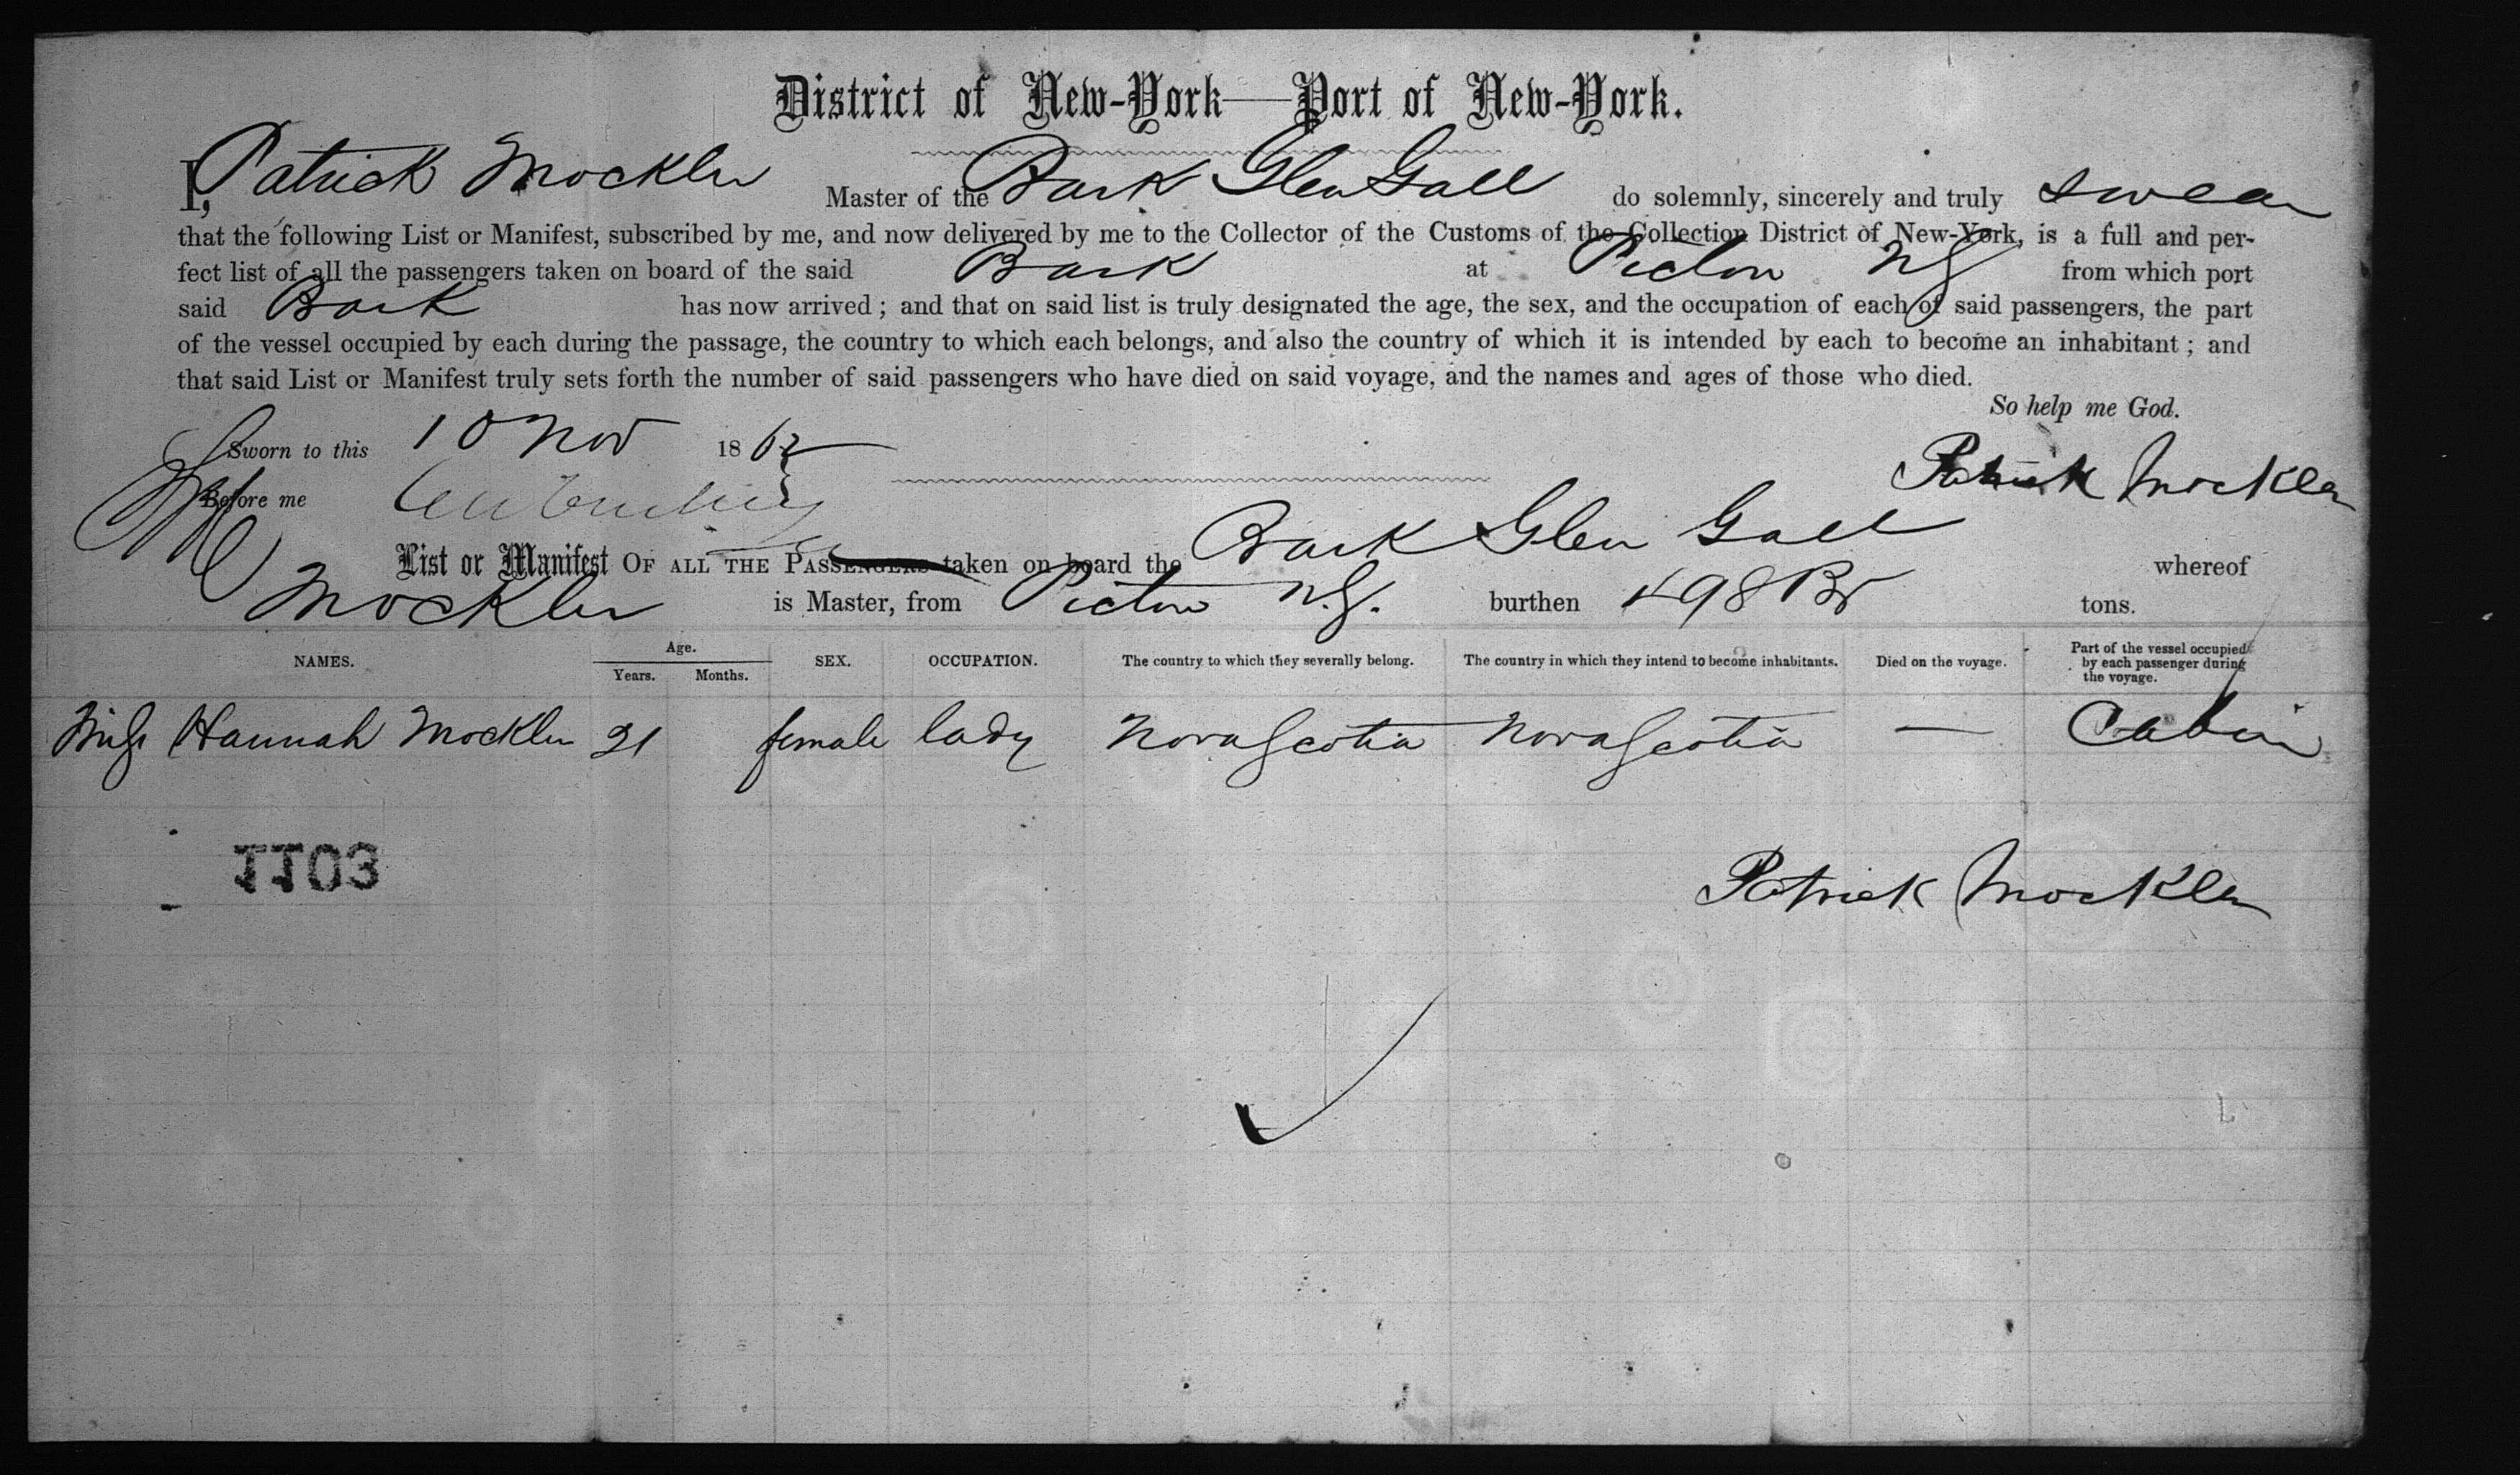 District of New-York—Port of New-York.
I, Patrick Mockler Master of the Bark Glen Gall do solemnly, sincerely and truly swear
that the following List or Manifest, subscribed by me, and now delivered by me to the Collector of the Customs of the Collection District of New-York, is a full and per-
fect list of all the passengers taken on board of the said Bark at Pictou NS from which port
said Bark has now arrived; and that on said list is truly designated the age, the sex, and the occupation of each of said passengers, the part
of the vessel occupied by each during the passage, the country to which each belongs, and also the country of which it is intended by each to become an inhabitant; and
that said List or Manifest truly sets forth the number of said passengers who have died on said voyage, and the names and ages of those who died.
So help me God.
Sworn to this 10 Nov 1862
Patrick Mockler
Before me
List or Manifest OF ALL THE PASSENGERS taken on board the Bark Glen Gall whereof
Mockler is Master, from Pictou N.S. burthen 498 Br tons.
NAMES. Age. Years. Months. SEX. OCCUPATION. The country to which they severally belong. The country in which they intend to become inhabitants. Died on the voyage. Part of the vessel occupied by each passenger during the voyage.
Miss Hannah Mockler 21 female lady Nova Scotia Nova Scotia — Cabin
1103
Patrick Mockler